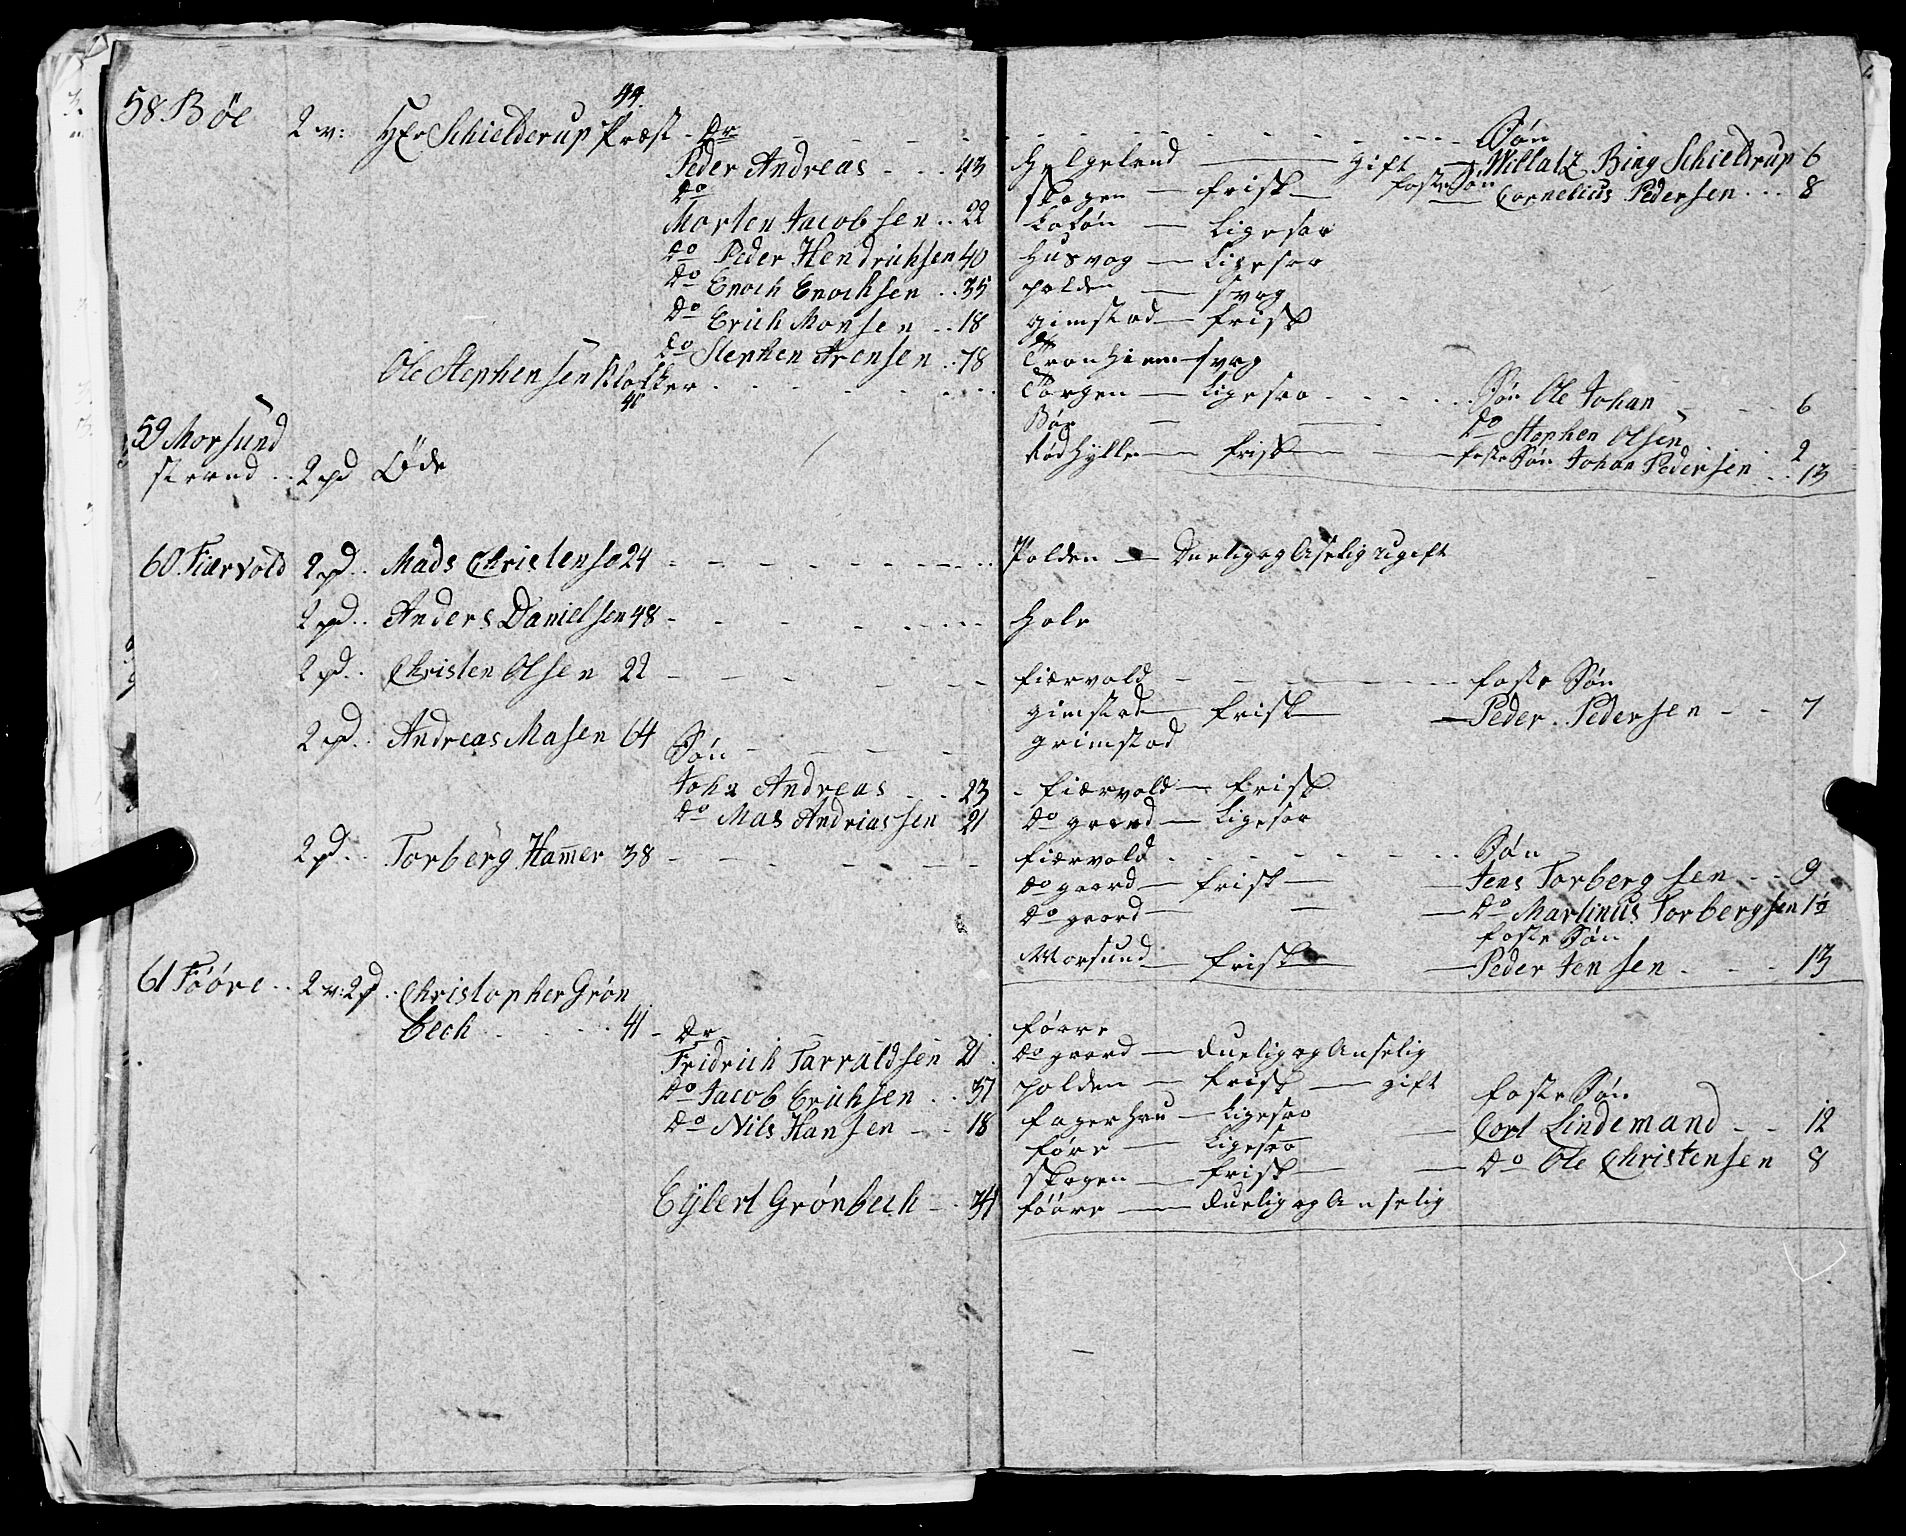 44.
58 Bøe 2 v: Hr Schielderup Præst - Dr
Peder Andreas - - . 43
do
Morten Jacobsen .. 22
do Peder Hendrichsen 40
do Enoch Enochsen .. 35
do Erich Monsen .. 18
do Stephen Arensen .. 78
Ole Stephensen Klokker
41
59 Morsund
strand .. 2 pd Øde
60 Fiærvold 2 pd .. Mads Christense 24
2 pd .. Anders Danielsen 48
2 pd .. Christen Olsen 22
2 pd .. Andreas Masen 64
Søn
Joha Andreas . . 23
do Mas Andriassen 21
2 pd .. Torberg Hamer 38
61 Føøre .. 2 v: 2 pd .. Christopher Grøn
bech . . . . 41 - Dr
Fridrich Tarraldsen 21
do Jacob Erichsen .. 37
do Nils Hansen - . 18
Eÿlert Grønbech - . 34
Søn
Helgeland — gift — Willatz Bing Schieldrup 6
foste Søn
Skogen — frisk — Cornelius Pedersen ... 8
Loføn — Ligesaa
Husvog — Ligesaa
polden — svag
gimstad — frisk
Tronhiem — svag
Torgen — Ligesaa - - - Søn Ole Johan - - - 6
Bøe — — do Stephen Olsen . . 2
Rødhylle — frisk — foste Søn Johan Pedersen . . . 13
Polden — Duelig og Aselig ugift
Hole
fiærvold - - - foste Søn
gimstad — frisk — Peder. Pedersen - - 7
grimstad
- fiærvold — frisk
do gaard — Ligesaa
fiærvold - - - Søn
do gaard — frisk — Jens Torbergsen - - 9
do gaard — — do Martinus Torbergsen 1½
foste Søn
Morsund — frisk — Peder Jensen . - - - 13
føøre
do gaard — duelig og Anselig
polden — frisk — gift foste Søn
fagerhau — Ligesaa
— Cort Lindemand - - 12
føre — Ligesaa
— do Ole Christensen 8
Skogen — frisk
føøre — duelig og Anselig